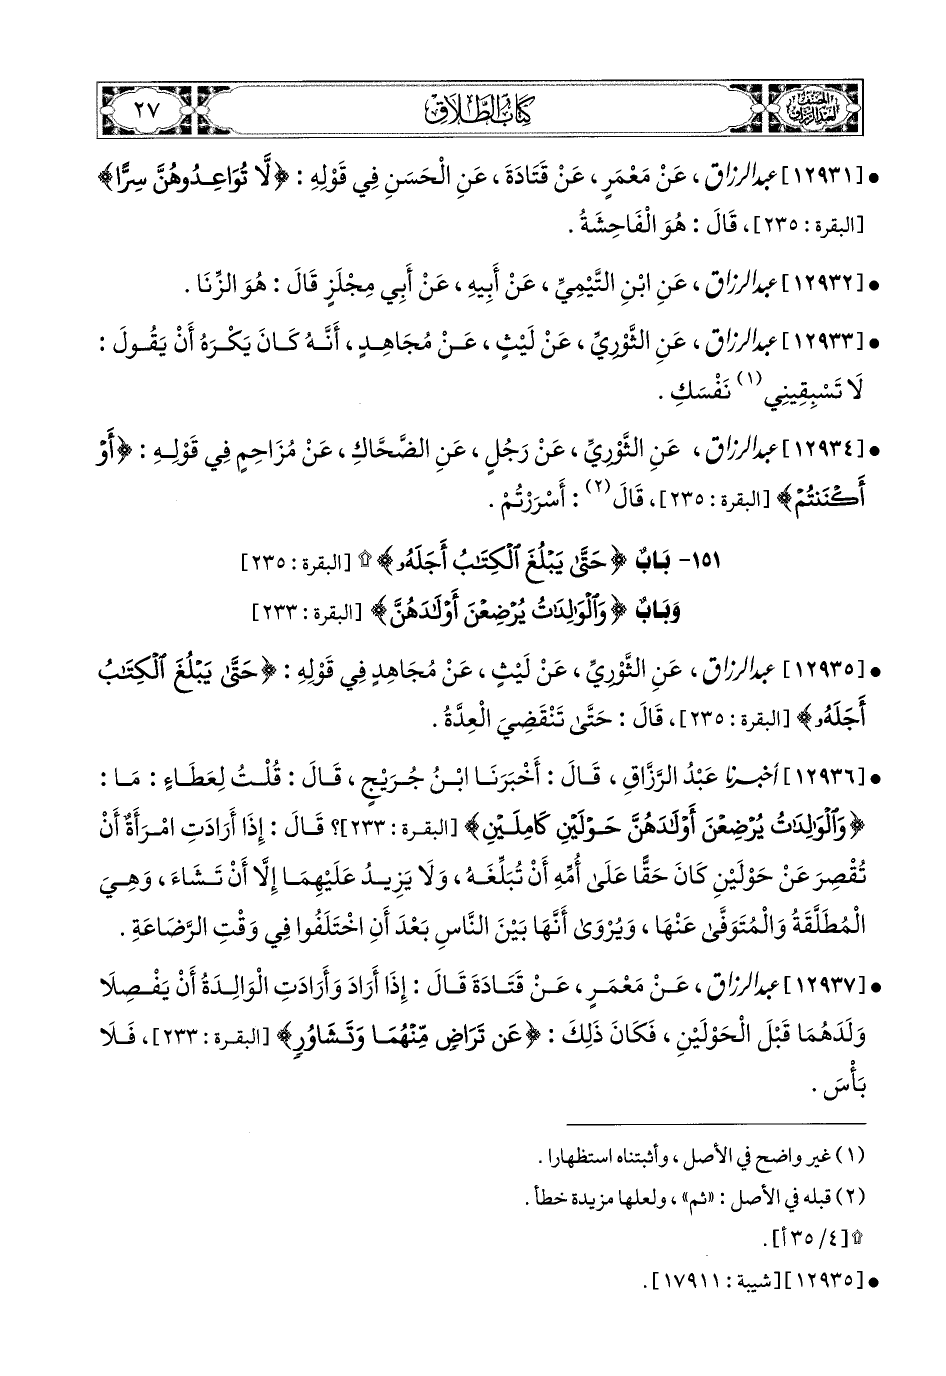 المصنف
لعبد الرزاق
كتاب الطلاق
٢٧
• [١٢٩٣١] عبد الرزاق، عَنْ مَعْمَرٍ، عَنْ قَتَادَةَ، عَنِ الْحَسَنِ فِي قَوْلِهِ: ﴿لَّا تُوَاعِدُوهُنَّ سِرًّا﴾
[البقرة: ٢٣٥]، قَالَ: هُوَ الْفَاحِشَةُ.
• [١٢٩٣٢] عبد الرزاق، عَنِ ابْنِ التَّيْمِيِّ، عَنْ أَبِيهِ، عَنْ أَبِي مِجْلَزٍ قَالَ: هُوَ الزِّنَا.
• [١٢٩٣٣] عبد الرزاق، عَنِ الثَّوْرِيِّ، عَنْ لَيْثٍ، عَنْ مُجَاهِدٍ، أَنَّهُ كَانَ يَكْرَهُ أَنْ يَقُولَ:
لَا تَسْبِقِينِي (١) نَفْسَكِ.
• [١٢٩٣٤] عبد الرزاق، عَنِ الثَّوْرِيِّ، عَنْ رَجُلٍ، عَنِ الضَّحَّاكِ، عَنْ مُزَاحِمٍ فِي قَوْلِهِ: ﴿أَوْ
أَكْنَنتُمْ﴾ [البقرة: ٢٣٥]، قَالَ (٢): أَسْرَرْتُمْ.
١٥١- بَابٌ ﴿حَتَّىٰ يَبْلُغَ ٱلْكِتَٰبُ أَجَلَهُۥ﴾ ۩ [البقرة: ٢٣٥]
وَبَابٌ ﴿وَٱلْوَٰلِدَٰتُ يُرْضِعْنَ أَوْلَٰدَهُنَّ﴾ [البقرة: ٢٣٣]
• [١٢٩٣٥] عبد الرزاق، عَنِ الثَّوْرِيِّ، عَنْ لَيْثٍ، عَنْ مُجَاهِدٍ فِي قَوْلِهِ: ﴿حَتَّىٰ يَبْلُغَ ٱلْكِتَٰبُ
أَجَلَهُۥ﴾ [البقرة: ٢٣٥]، قَالَ: حَتَّىٰ تَنْقَضِيَ الْعِدَّةُ.
• [١٢٩٣٦] أخبرنا عَبْدُ الرَّزَّاقِ، قَالَ: أَخْبَرَنَا ابْنُ جُرَيْجٍ، قَالَ: قُلْتُ لِعَطَاءٍ: مَا:
﴿وَٱلْوَٰلِدَٰتُ يُرْضِعْنَ أَوْلَٰدَهُنَّ حَوْلَيْنِ كَامِلَيْنِ﴾ [البقرة: ٢٣٣]؟ قَالَ: إِذَا أَرَادَتِ امْرَأَةٌ أَنْ
تُقْصِرَ عَنْ حَوْلَيْنِ كَانَ حَقًّا عَلَىٰ أُمِّهِ أَنْ تُبَلِّغَهُ، وَلَا يَزِيدُ عَلَيْهِمَا إِلَّا أَنْ تَشَاءَ، وَهِيَ
الْمُطَلَّقَةُ وَالْمُتَوَفَّىٰ عَنْهَا، وَيُرْوَىٰ أَنَّهَا بَيْنَ النَّاسِ بَعْدَ أَنِ اخْتَلَفُوا فِي وَقْتِ الرَّضَاعَةِ.
• [١٢٩٣٧] عبد الرزاق، عَنْ مَعْمَرٍ، عَنْ قَتَادَةَ قَالَ: إِذَا أَرَادَ وَأَرَادَتِ الْوَالِدَةُ أَنْ يَفْصِلَا
وَلَدَهُمَا قَبْلَ الْحَوْلَيْنِ، فَكَانَ ذَلِكَ: ﴿عَن تَرَاضٍ مِّنْهُمَا وَتَشَاوُرٍ﴾ [البقرة: ٢٣٣]، فَلَا
بَأْسَ.
(١) غير واضح في الأصل، وأثبتناه استظهارا.
(٢) قبله في الأصل: «ثم»، ولعلها مزيدة خطأ.
۩ [٤/ ٣٥ أ].
• [١٢٩٣٥] [شيبة: ١٧٩١١].